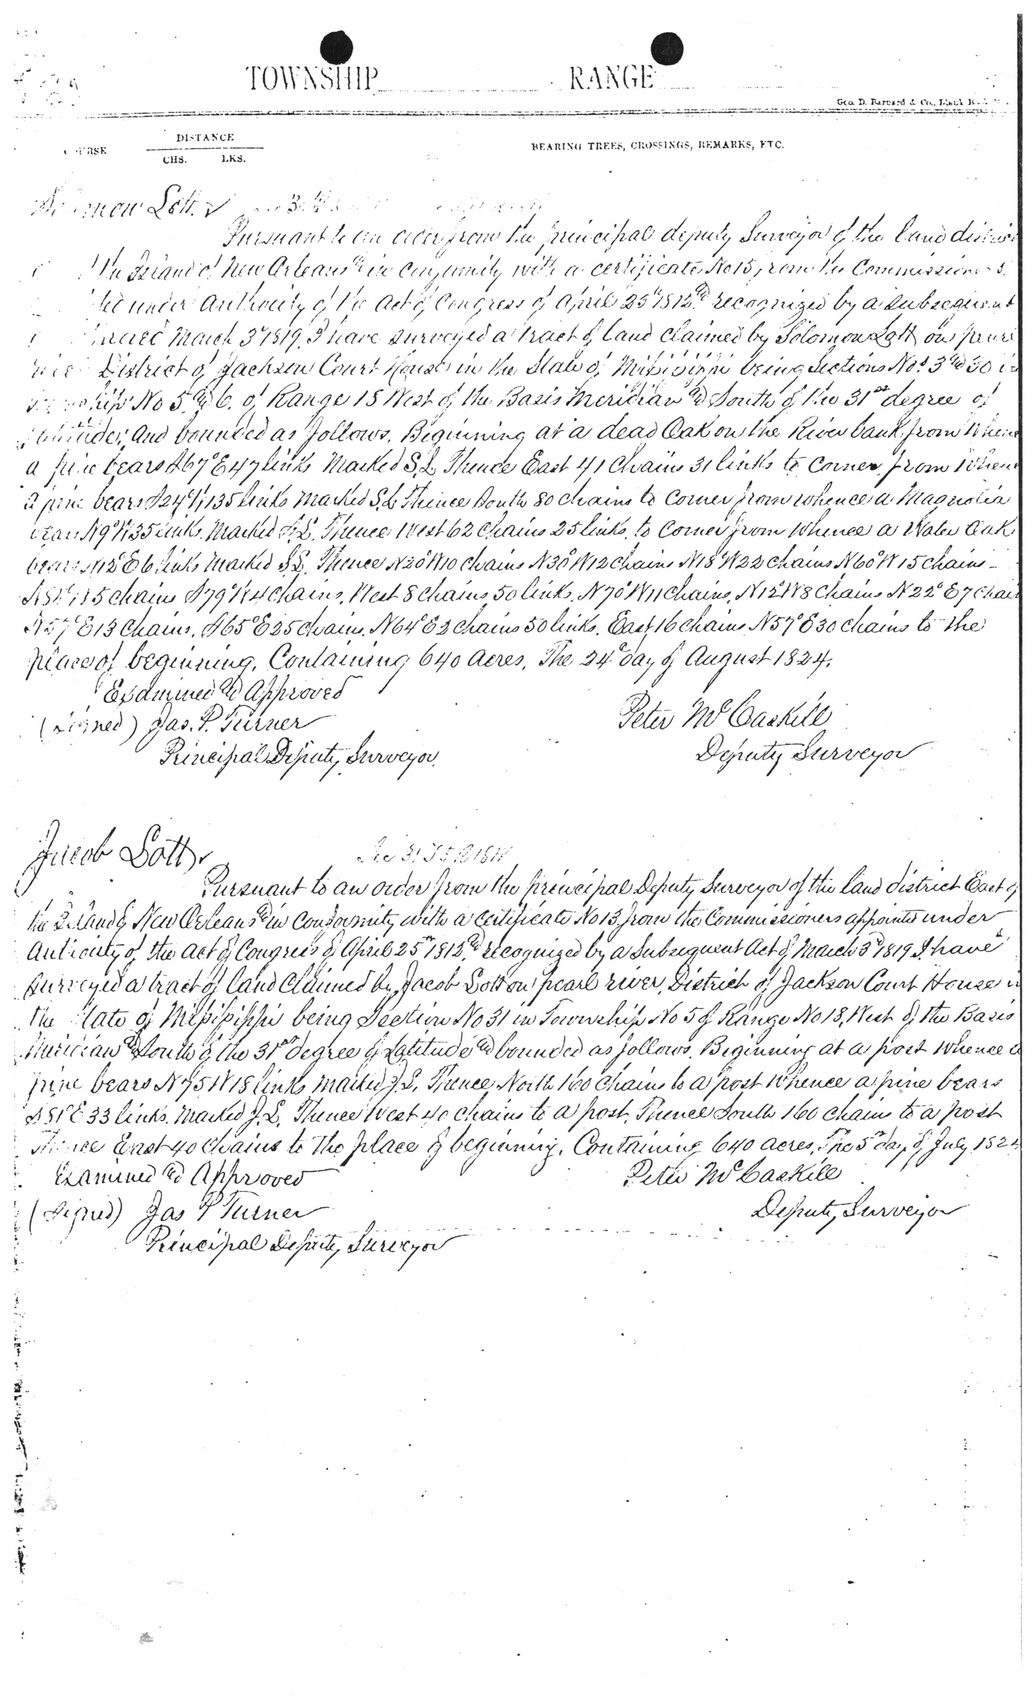 TOWNSHIP RANGE
Geo. D. Barnard & Co.
DISTANCE
CHS. LKS.
BEARING TREES, CROSSINGS, REMARKS, ETC.
Lott
Pursuant to an order from the principal deputy Surveyor of the land district
Island of New Orleans & in conformity with a certificate No 15, from the Commissioners
under authority of the act of Congress of April 25th 1812 & recognized by a subsequent
March 3d 1819, I have surveyed a tract of land claimed by Solomon Lott on pearl
District of Jackson Court House in the State of Mississippi being Sections No. 3 & 30 in
No 5 & 6. of Range 18 West of the Basis Meridian & South of the 31st degree of
and bounded as follows. Beginning at a dead Oak on the River bank from Whence
a pine bears S67°E 47 links Marked S.L. Thence East 41 Chains 31 links to Corner from Whence
a pine bears S24°W 135 links marked S.L. Thence South 80 chains to Corner from whence a Magnolia
N9°W 35 links. Marked S.L. Thence West 62 Chains 25 links. to Corner from Whence a Water Oak
bears N12°E 6 links Marked S.L. Thence N20°W 10 chains N30°W 12 chains N18°W 22 chains N60°W 15 chains
15 chains S79°W 4 chains, West 8 chains 50 links. N70°W 11 chains, N12°W 8 chains N22°E 7 chains
N57°E 13 chains. S65°E 25 chains. N64°E 2 chains 50 links. East 16 chains N57°E 30 chains to the
place of beginning. Containing 640 acres. The 24th day of August 1824.
Examined & Approved
(Signed) Jas. P. Turner Peter McCaskill
Principal Deputy Surveyor. Deputy Surveyor
Jacob Lott Sec 31 T 5 R 18 W
Pursuant to an order from the principal Deputy Surveyor of the land district East of
the Island of New Orleans & in Conformity with a certificate No 13 from the Commissioners appointed under
Authority of the act of Congress of April 25th 1812, & recognized by a Subsequent Act of March 3d 1819, I have
surveyed a tract of land Claimed by Jacob Lott on pearl river, District of Jackson Court House in
the State of Mississippi being Section No 31 in Township No 5 of Range No 18, West of the Basis
Meridian & South of the 31st degree of Latitude & bounded as follows. Beginning at a post Whence a
pine bears N75°W 18 links marked J.L. Thence North 160 chains to a post Whence a pine bears
S81°E 33 links. Marked J.L. Thence West 40 chains to a post. Thence South 160 chains to a post
Thence East 40 chains to the place of beginning, Containing 640 acres, The 5th day of July 1824
Examined & Approved Peter McCaskill
(Signed) Jas P Turner Deputy Surveyor
Principal Deputy Surveyor